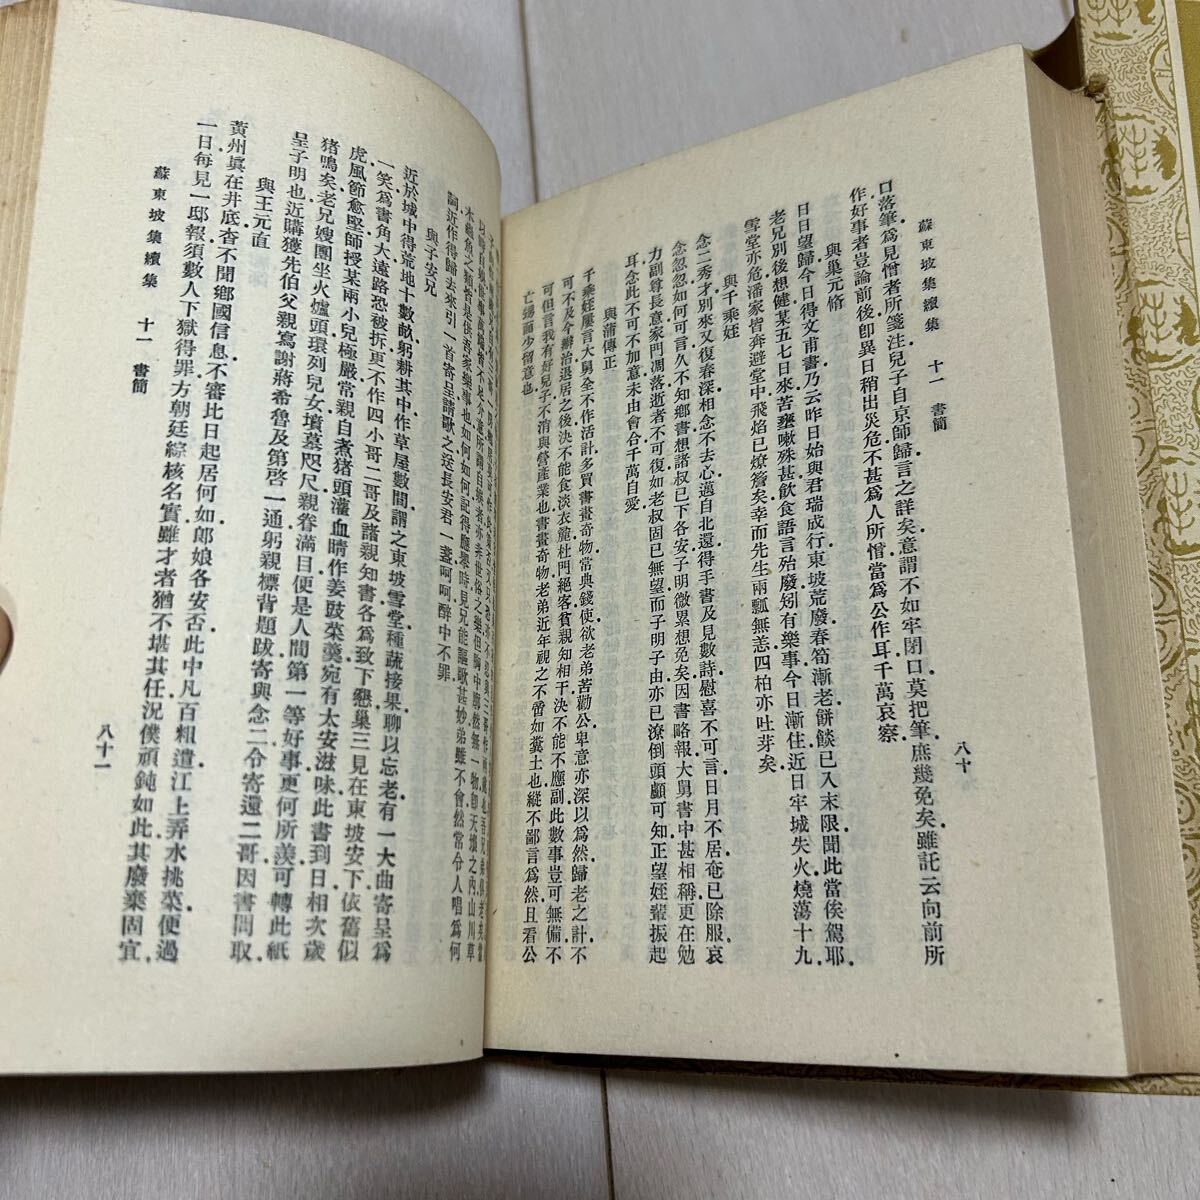 蘇東坡集續集　十一　書簡
八十
口落筆爲見憎者所箋注兒子自京師歸言之詳矣意謂不如牢閉口莫把筆庶幾免矣雖託云向前所
作好事者豈論前後卽異日稍出災危不甚爲人所憎當爲公作耳千萬哀察
與巢元脩
日日望歸今日得文甫書乃云昨日始與君瑞成行東坡荒廢春筍漸老餅餤已入末限聞此當俟駕耶
老兄別後想健某五七日來苦壅嗽殊甚飲食語言殆廢矧有樂事今日漸住近日牢城失火燒蕩十九
雪堂亦危潘家皆奔避堂中飛焰已燎簷矣幸而先生兩瓢無恙四柏亦吐芽矣
與千乘姪
念二秀才別來又復春深相念不去心邁自北還得手書及見數詩慰喜不可言日月不居奄已除服哀
念忽忽如何可言久不知鄉書想諸叔已下各安子明微累想免矣因書略報大舅書中甚相稱更在勉
力副尊長意家門凋落逝者不可復如老叔固已無望而子明子由亦已潦倒頭顱可知正望姪輩振起
耳念此不可不加意未由會合千萬自愛
與蒲傳正
千乘姪屢言大舅全不作活計多買書畫奇物常典錢使欲老弟苦勸公卑意亦深以爲然歸老之計不
可不及今辦治退居之後決不能食淡衣麤杜門絕客貧親知相干決不能不應副此數事豈可無備不
可但言我有好兒子不消與營產業也書畫奇物老弟近年視之不啻如糞土也縱不鄙言爲然且看公
亡甥面少留意也
木蟲魚之類皆是供吾家樂事也如何如何記得應舉時見兄能謳歌甚妙弟雖不會然常令人唱爲何
詞近作得歸去來引一首寄呈請歌之送長安君一盞呵呵醉中不罪
與子安兄
近於城中得荒地十數畝躬耕其中作草屋數間謂之東坡雪堂種蔬接果聊以忘老有一大曲寄呈爲
一笑爲書角大遠路恐被拆更不作四小哥二哥及諸親知書各爲致下懇巢三見在東坡安下依舊似
虎風節愈堅師授某兩小兒極嚴常親自煮猪頭灌血睛作姜豉菜羹宛有太安滋味此書到日相次歲
猪鳴矣老兄嫂團坐火爐頭環列兒女墳墓咫尺親眷滿目便是人間第一等好事更何所羨可轉此紙
呈子明也近購獲先伯父親寫謝蔣希魯及第啓一通躬親標背題跋寄與念二令寄還二哥因書問取
與王元直
黃州眞在井底杳不聞鄉國信息不審比日起居何如郎娘各安否此中凡百粗遣江上弄水挑菜便過
一日每見一邸報須數人下獄得罪方朝廷綜核名實雖才者猶不堪其任況僕頑鈍如此其廢棄固宜
蘇東坡集續集　十一　書簡
八十一